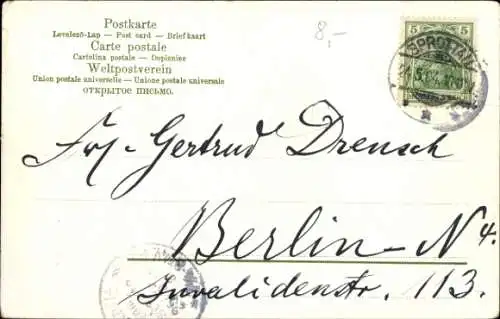 Postkarte
Levelező-Lap — Post card — Briefkaart
Carte postale
Cartolina postale — Dopisnice
Weltpostverein
Union postale universelle — Unione postale universale
ОТКРЫТОЕ ПИСЬМО.
8,-
5 5
SPROTTAU
Frl. Gertrud Drensch
Berlin-N4.
Invalidenstr. 113.